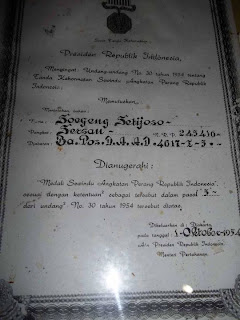 Presiden Republik Indonesia,
Mengingat: Undang-undang No. 30 tahun 1954 tentang
Tanda Kehormatan Sewindu Angkatan Perang Republik
Indonesia;
Memutuskan:
Soegeng Setijoso
Pangkat: Sersan N.R.P. 245410
Da.Pos.D.A.A.D 4017-I-3
Dianugerahi:
"Medali Sewindu Angkatan Perang Republik Indonesia",
sesuai dengan ketentuan2 sebagai tersebut dalam pasal 3
dari undang2 No. 30 tahun 1954 tersebut diatas.
Dikeluarkan di Djakarta
pada tanggal 1 Oktober 195
A/n Presiden Republik Indonesia,
Menteri Pertahanan.